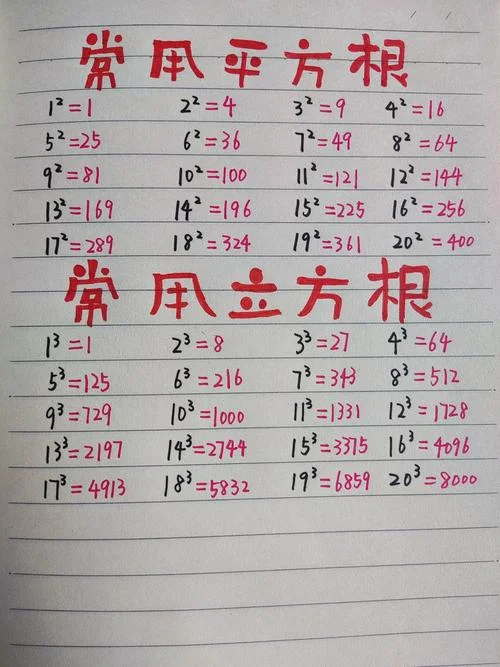 常用平方根
1²=1 2²=4 3²=9 4²=16
5²=25 6²=36 7²=49 8²=64
9²=81 10²=100 11²=121 12²=144
13²=169 14²=196 15²=225 16²=256
17²=289 18²=324 19²=361 20²=400
常用立方根
1³=1 2³=8 3³=27 4³=64
5³=125 6³=216 7³=343 8³=512
9³=729 10³=1000 11³=1331 12³=1728
13³=2197 14³=2744 15³=3375 16³=4096
17³=4913 18³=5832 19³=6859 20³=8000